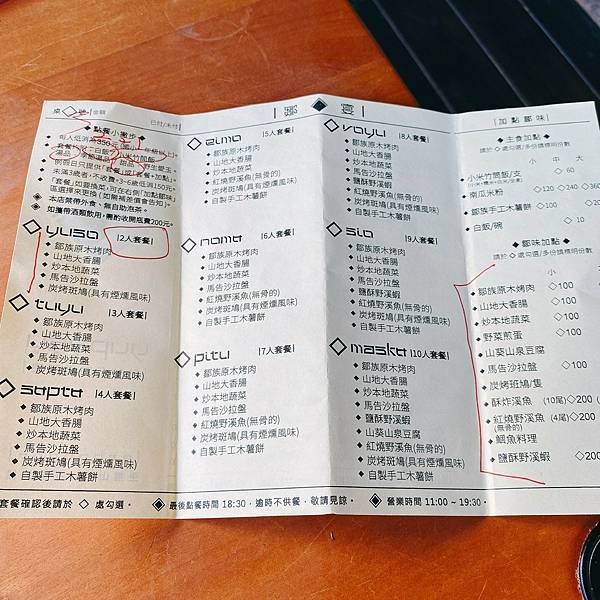 桌 號 金額
已付/未付
鄒 宴
加點鄒味
◆ 點餐小撇步 ◆
每人低消為350元
套餐均附:白飯,小米竹筒飯
湯品,季節甜品,甜品,野生愛玉。
例假日只提供「套餐」或「套餐+加點」。
未滿3歲者,不收費,3~6歲低消150元。
「套餐」如要換菜,可在右側「加點鄒味」
區選擇來更換(如需補差價會告知)
◈ 本店禁帶外食、無自助泡茶。
◈ 如攜帶酒類飲用,需酌收開底費200元。
◇yuso |2人套餐|
◆ 鄒族原木烤肉
◆ 山地大香腸
◆ 炒本地蔬菜
◆ 馬告沙拉盤
◆ 炭烤斑鳩(具有煙燻風味)
◇tuyu |3人套餐|
◆ 鄒族原木烤肉
◆ 山地大香腸
◆ 炒本地蔬菜
◆ 馬告沙拉盤
◆ 炭烤斑鳩(具有煙燻風味)
◇sopto |4人套餐|
◆ 鄒族原木烤肉
◆ 山地大香腸
◆ 炒本地蔬菜
◆ 馬告沙拉盤
◆ 炭烤斑鳩(具有煙燻風味)
◆ 自製手工木薯餅
◇eimo |5人套餐|
◆ 鄒族原木烤肉
◆ 山地大香腸
◆ 炒本地蔬菜
◆ 馬告沙拉盤
◆ 炭烤斑鳩(具有煙燻風味)
◆ 紅燒野溪魚(無骨的)
◆ 自製手工木薯餅
◇nomo |6人套餐|
◆ 鄒族原木烤肉
◆ 山地大香腸
◆ 炒本地蔬菜
◆ 馬告沙拉盤
◆ 炭烤斑鳩(具有煙燻風味)
◆ 紅燒野溪魚(無骨的)
◆ 自製手工木薯餅
◇pitu |7人套餐|
◆ 鄒族原木烤肉
◆ 山地大香腸
◆ 炒本地蔬菜
◆ 馬告沙拉盤
◆ 紅燒野溪魚(無骨的)
◆ 炭烤斑鳩(具有煙燻風味)
◆ 自製手工木薯餅
◇voyu |8人套餐|
◆ 鄒族原木烤肉
◆ 山地大香腸
◆ 炒本地蔬菜
◆ 馬告沙拉盤
◆ 鹽酥野溪蝦
◆ 紅燒野溪魚(無骨的)
◆ 炭烤斑鳩(具有煙燻風味)
◆ 自製手工木薯餅
◇sio |9人套餐|
◆ 鄒族原木烤肉
◆ 山地大香腸
◆ 炒本地蔬菜
◆ 馬告沙拉盤
◆ 鹽酥野溪蝦
◆ 炭烤斑鳩(具有煙燻風味)
◆ 紅燒野溪魚(無骨的)
◆ 自製手工木薯餅
◇masku |10人套餐|
◆ 鄒族原木烤肉
◆ 山地大香腸
◆ 炒本地蔬菜
◆ 馬告沙拉盤
◆ 鹽酥野溪蝦
◆ 山葵山泉豆腐
◆ 紅燒野溪魚(無骨的)
◆ 炭烤斑鳩(具有煙燻風味)
◆ 自製手工木薯餅
◆ 主食加點 ◆
請於 ◇ 處勾選/多份請標明份數
小 中 大
◆ 小米竹筒飯/支 ◇60
◆ 南瓜米粉 ◇120 ◇240 ◇360
◆ 鄒族手工木薯餅 ◇100 ◇200
◆ 白飯/碗 ◇10
◆ 鄒味加點 ◆
請於 ◇ 處勾選/多份請標明份數
小
◆ 鄒族原木烤肉 ◇100
◆ 山地大香腸 ◇100
◆ 炒本地蔬菜 ◇100
◆ 野菜煎蛋 ◇100
◆ 山葵山泉豆腐
◆ 馬告沙拉盤 ◇100
◆ 炭烤斑鳩/隻
◆ 酥炸溪魚 (10尾)◇200
◆ 紅燒野溪魚 (4尾)◇200
(無骨的)
◆ 鯛魚料理
◆ 鹽酥野溪蝦 ◇200
套餐確認後請於 ◇ 處勾選。 ◈ 最後點餐時間 18:30,逾時不供餐,敬請見諒。 ◈ 營業時間 11:00 ~ 19:30。